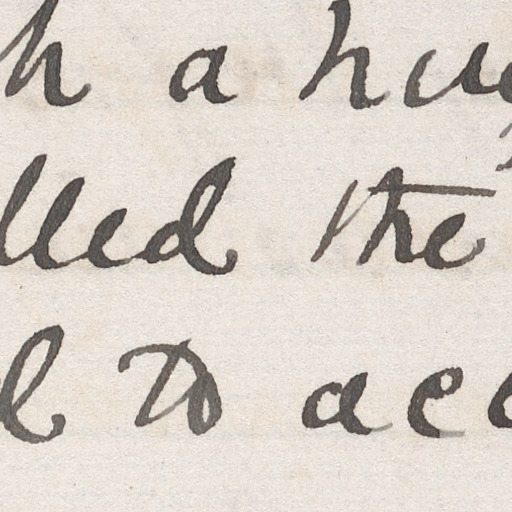 h a hug
lled the
l to acc